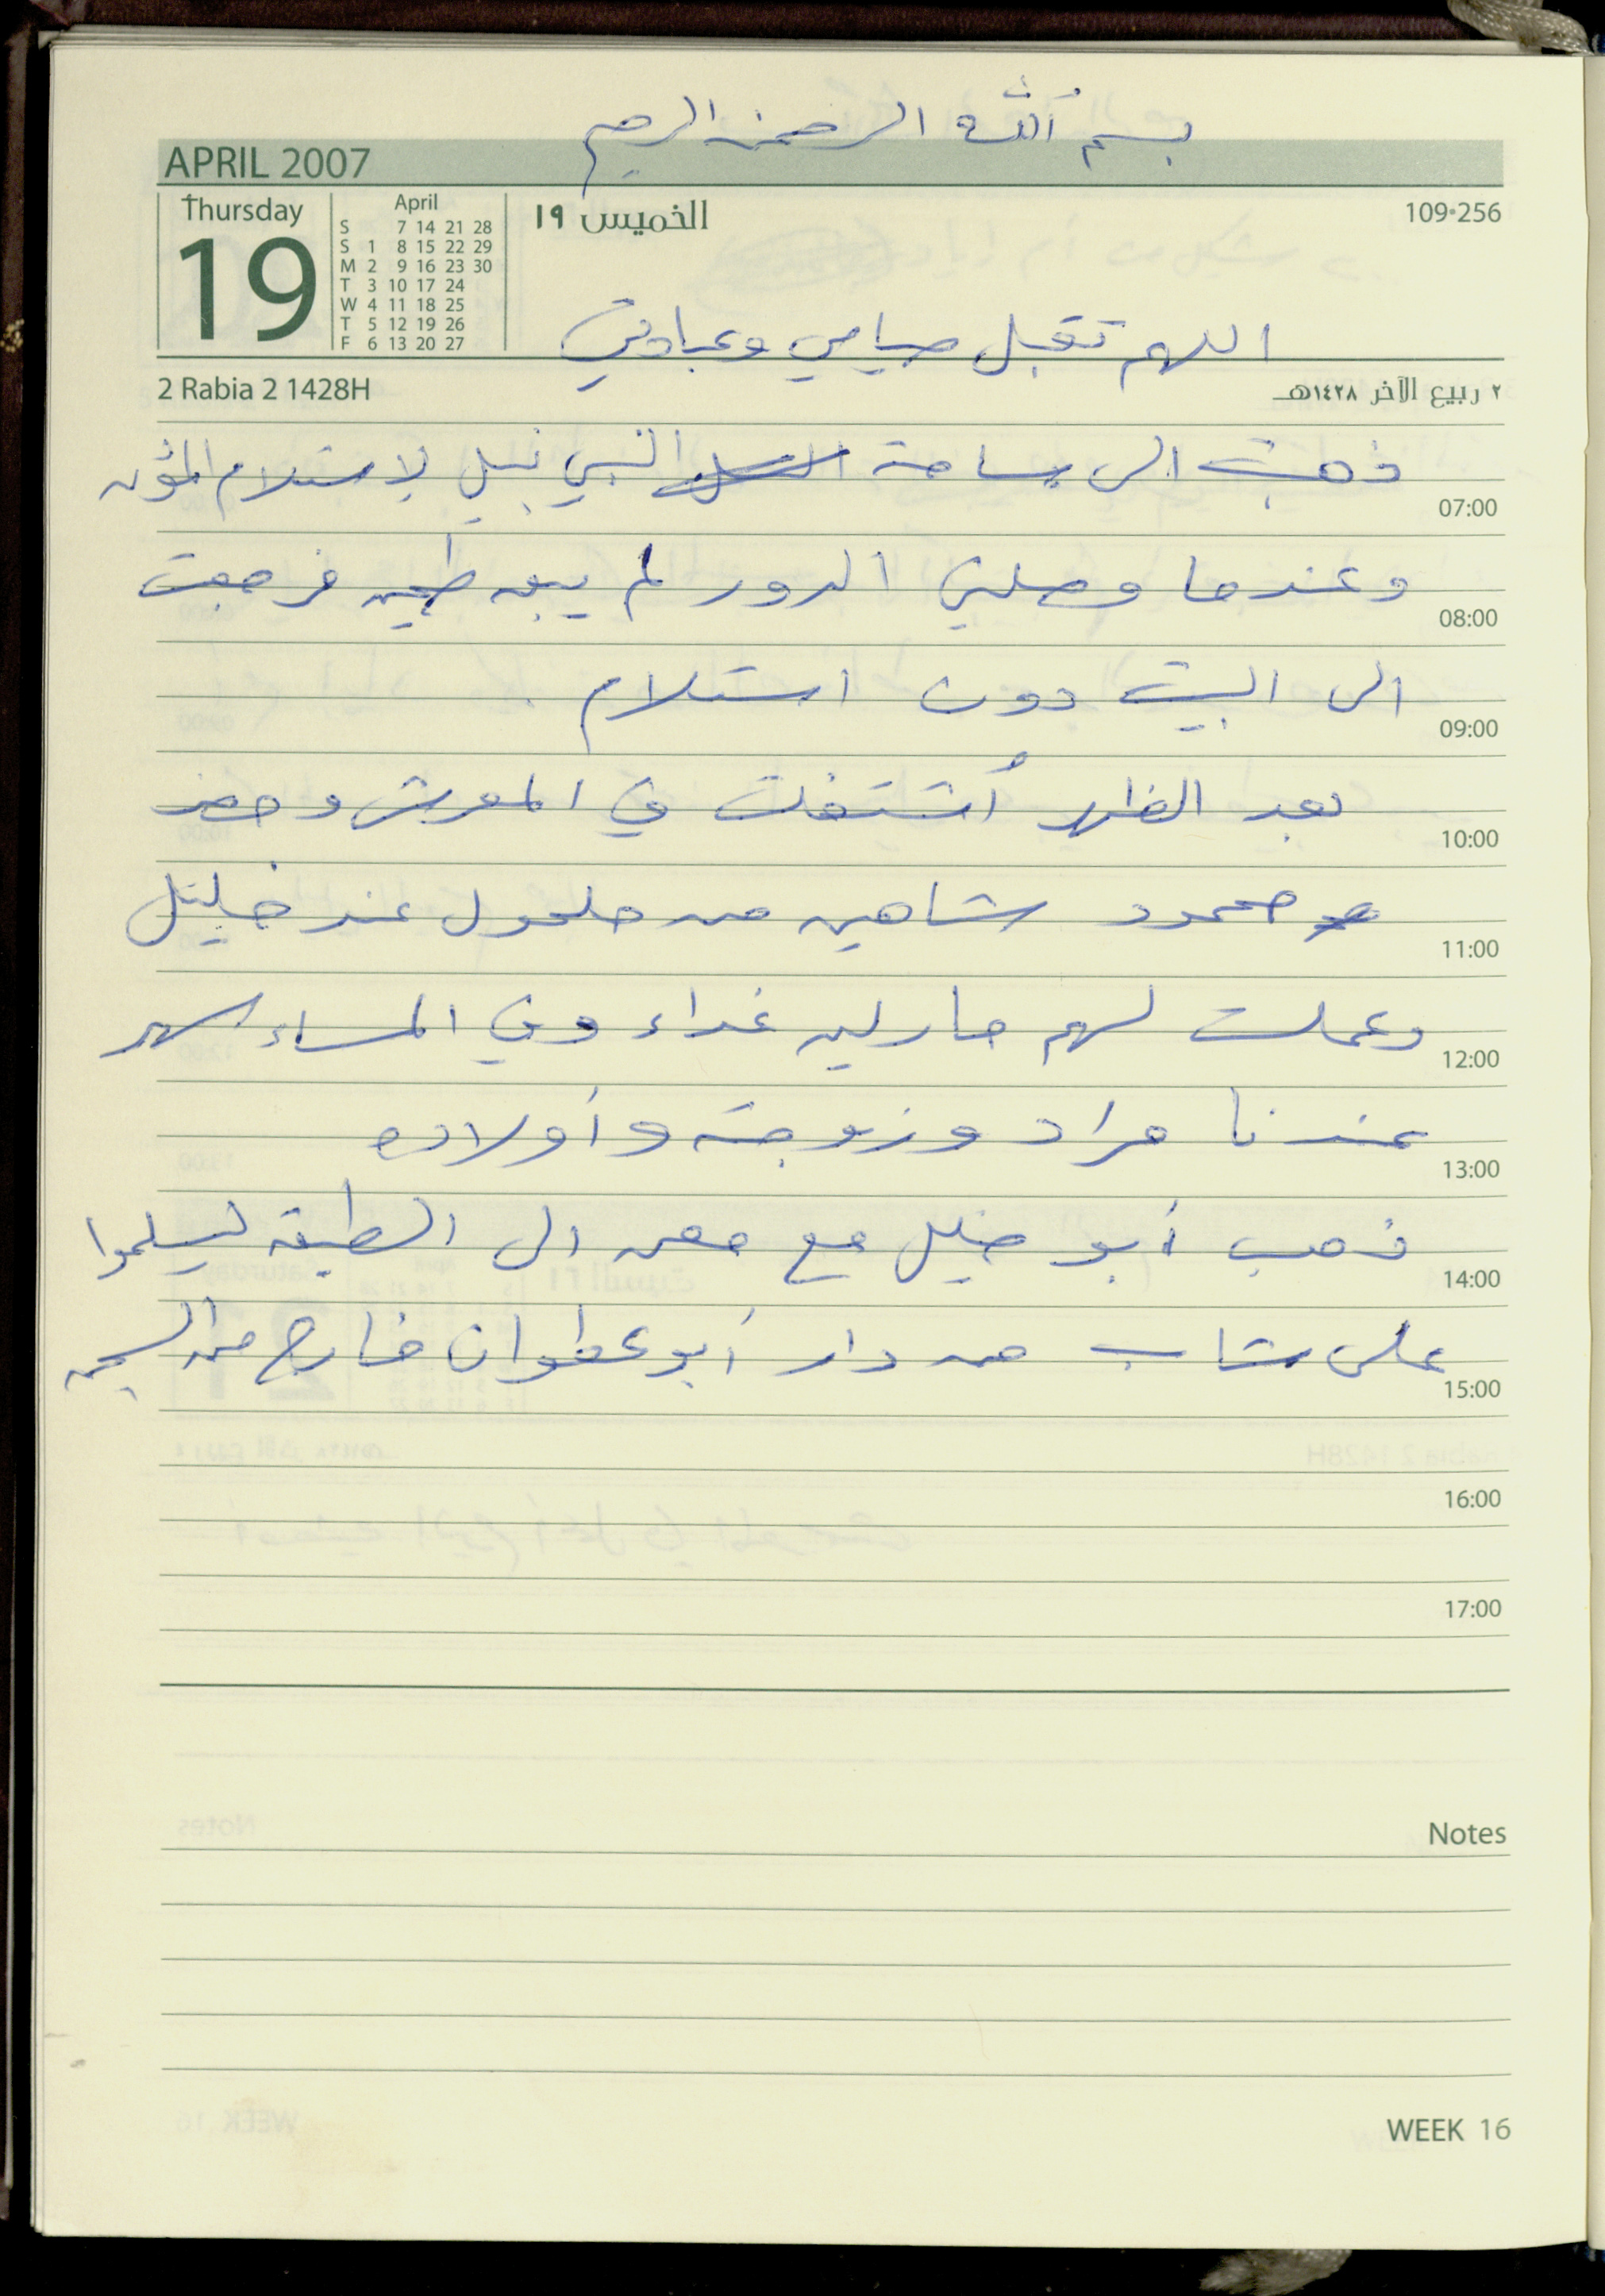 بسم الله الرحمن الرحيم
APRIL 2007
Thursday
19
April
S 7 14 21 28
S 1 8 15 22 29
M 2 9 16 23 30
T 3 10 17 24
W 4 11 18 25
T 5 12 19 26
F 6 13 20 27
الخميس ١٩
109-256
اللهم تقبل صيامي وعبادتي
2 Rabia 2 1428H
٢ ربيع الآخر ١٤٢٨هـ
ذهبت الى ساحة النبي لاستلام المؤن
07:00
وعندما وصلني الدور لم يبق طحين فرجعت
08:00
الى البيت دون استلام
09:00
بعد الظهر أشتغلت في المعرش وحضر
10:00
محمود شاهين من حلحول عند خليل
11:00
وعملت لهم مارلين غداء وفي المساء سهر
12:00
عندنا مراد وزوجته وأولاده
13:00
ذهب أبو خليل مع معن الى الطبقة ليسلموا
14:00
على شاب من دار أبو عطوان خارج من السجن
15:00
16:00
17:00
Notes
WEEK 16